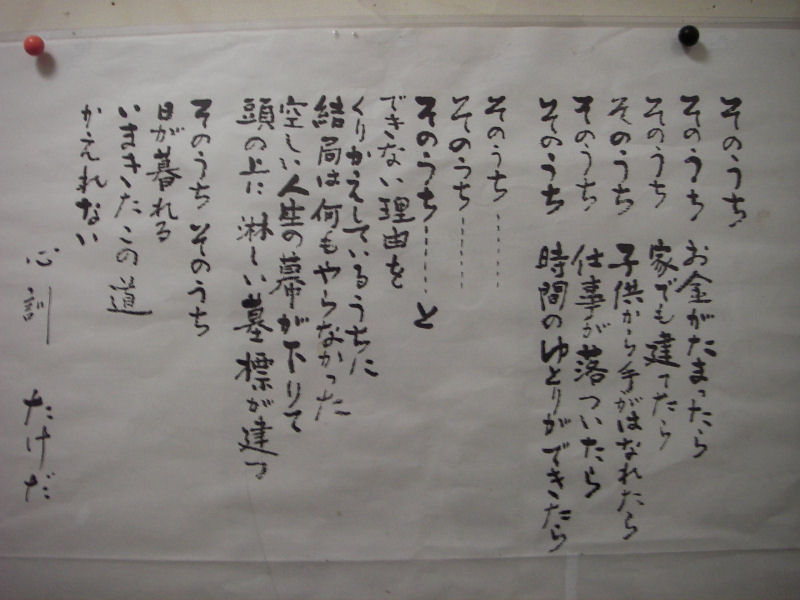 そのうち
そのうち お金がたまったら
そのうち 家でも建てたら
そのうち 子供から手がはなれたら
そのうち 仕事が落ついたら
そのうち 時間のゆとりができたら
そのうち……
そのうち………
そのうち……と
できない理由を
くりかえしているうちに
結局は何もやらなかった
空しい人生の幕が下りて
頭の上に淋しい墓標が建つ
そのうち そのうち
日が暮れる
いまきたこの道
かえれない
心訓 たけだ